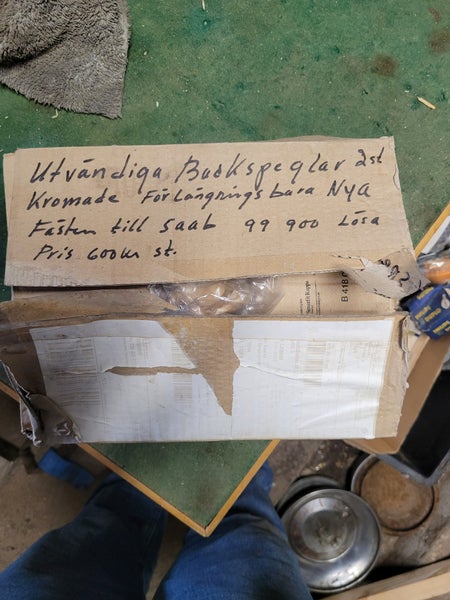 Utvändiga Backspeglar 2st
Kromade Förlängningsbara Nya
Fästen till Saab 99 900 Lösa
Pris 600kr st.
Smurfit Kappa
B 418